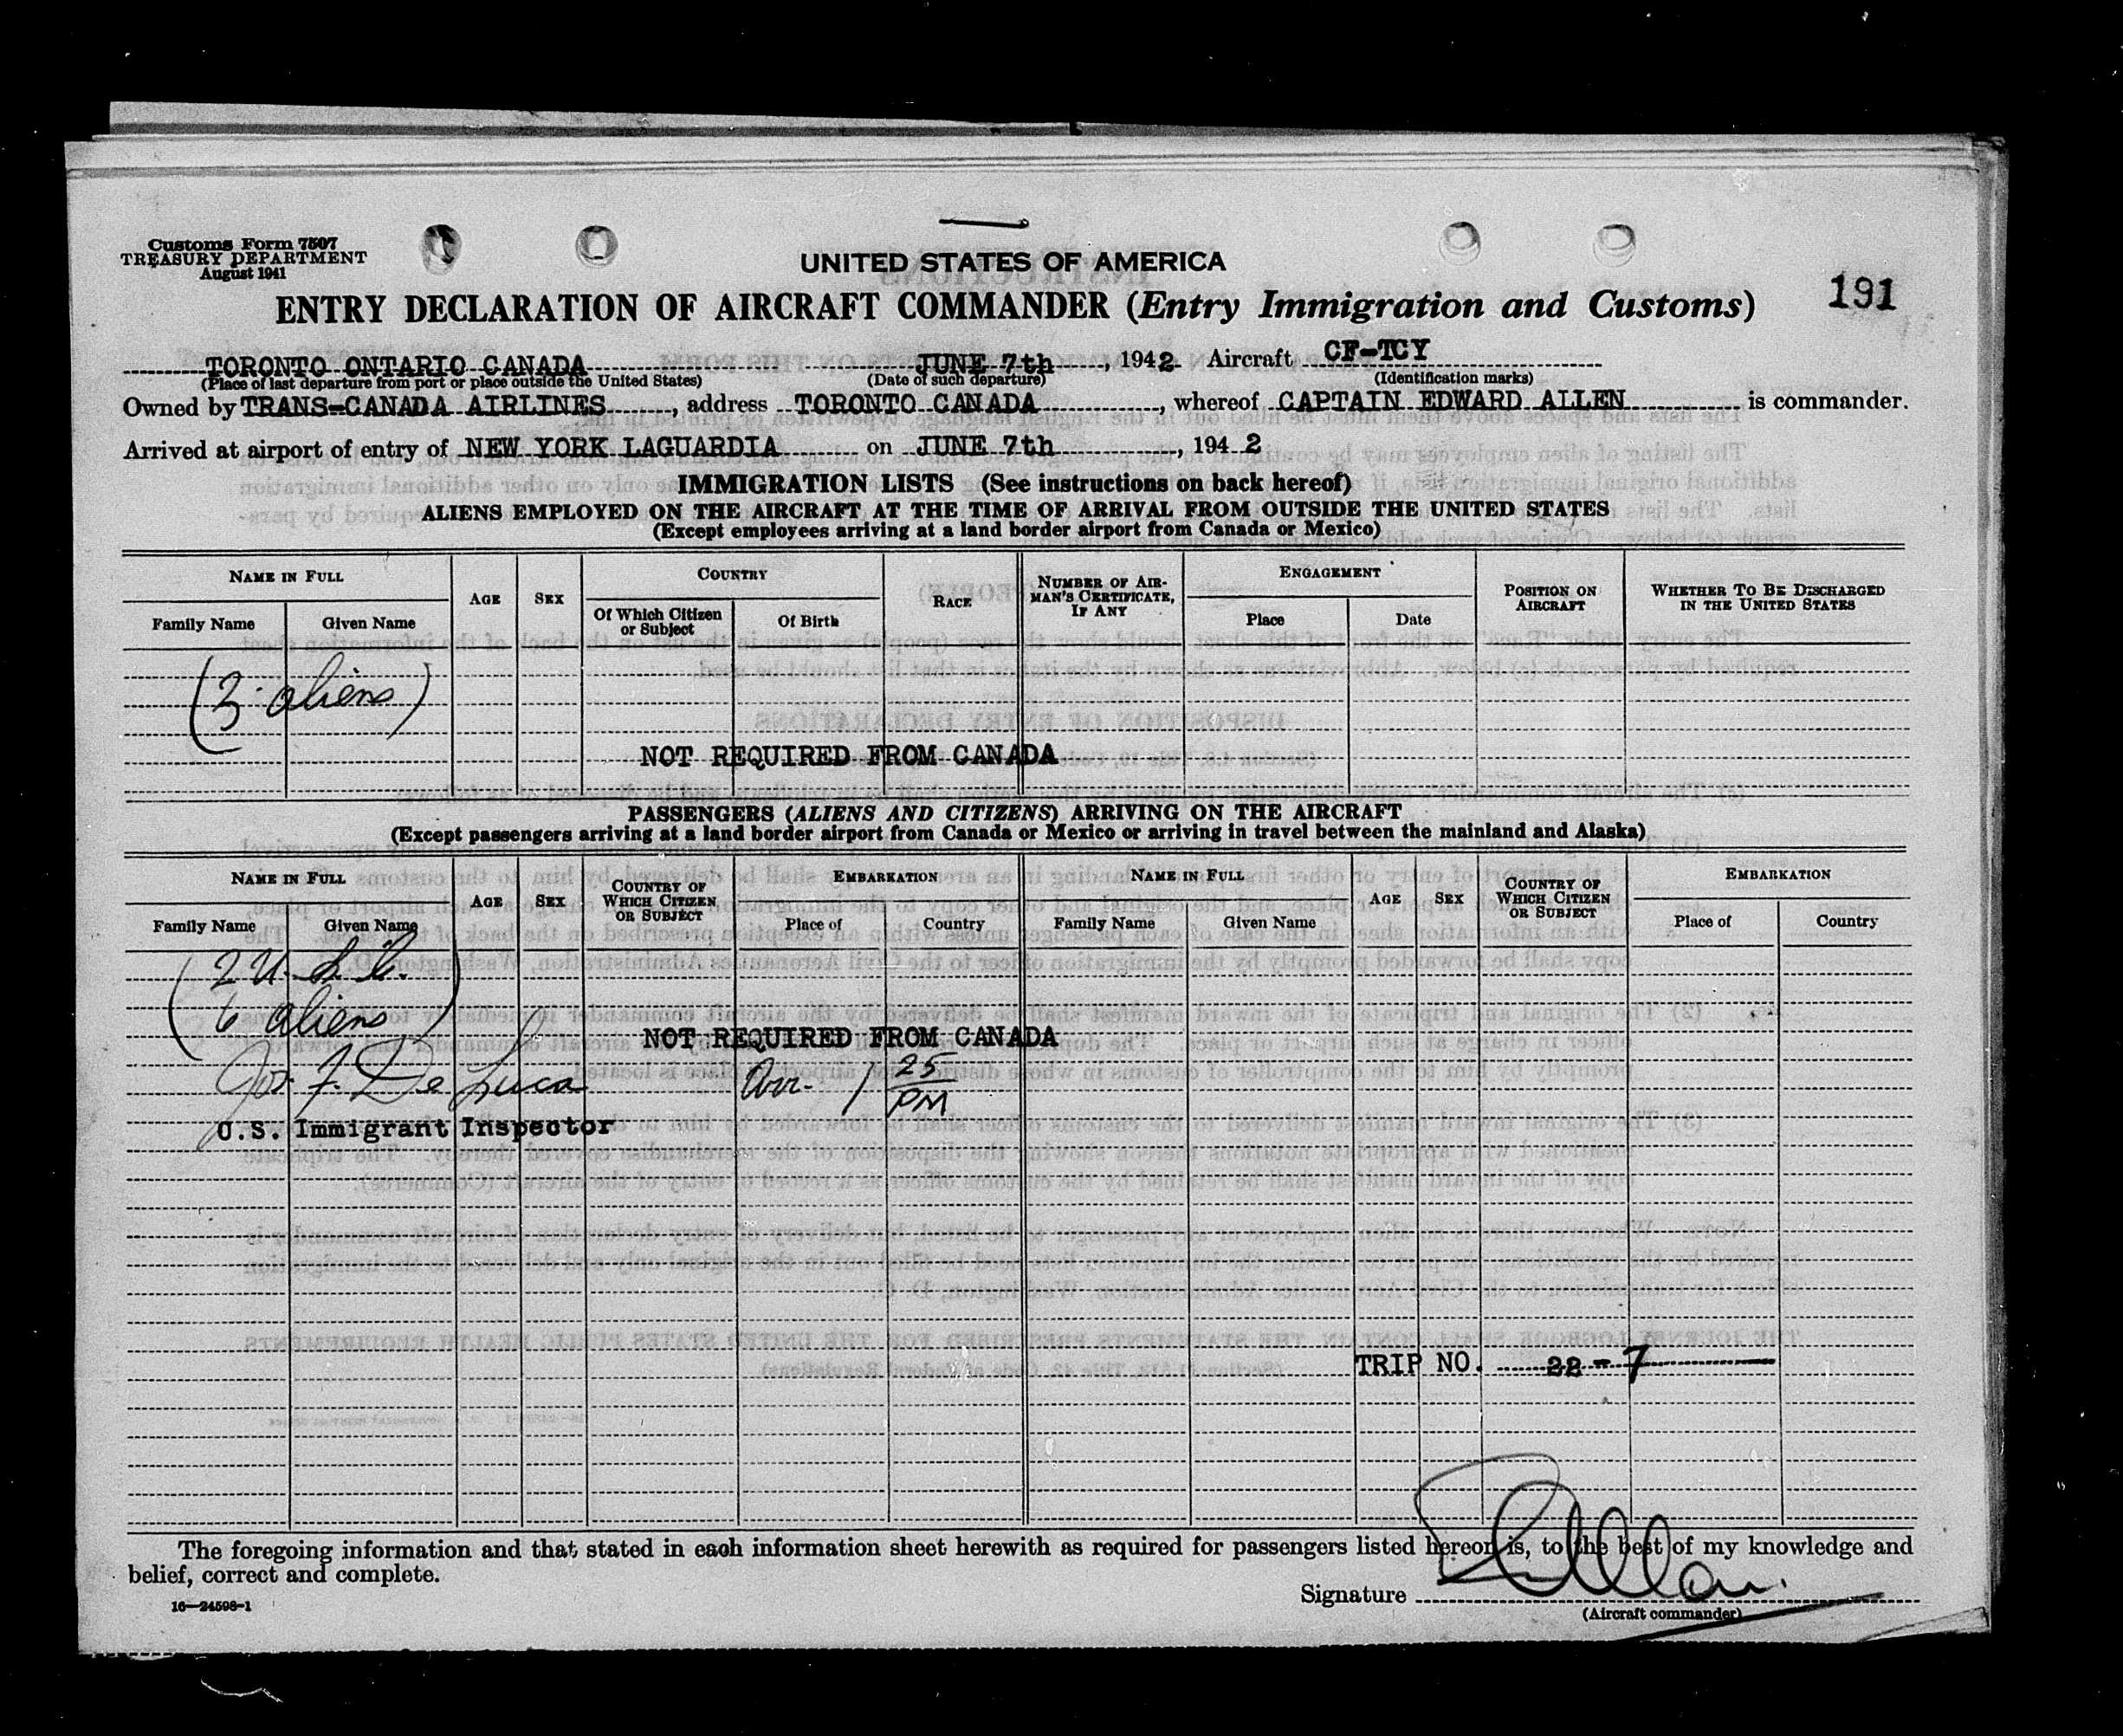 Customs Form 7507
TREASURY DEPARTMENT
August 1941
UNITED STATES OF AMERICA
191
ENTRY DECLARATION OF AIRCRAFT COMMANDER (Entry Immigration and Customs)
TORONTO ONTARIO CANADA JUNE 7th, 1942 Aircraft CF-TCY
(Place of last departure from port or place outside the United States) (Date of such departure) (Identification marks)
Owned by TRANS-CANADA AIRLINES, address TORONTO CANADA, whereof CAPTAIN EDWARD ALLEN is commander.
Arrived at airport of entry of NEW YORK LAGUARDIA on JUNE 7th, 194 2
IMMIGRATION LISTS (See instructions on back hereof)
ALIENS EMPLOYED ON THE AIRCRAFT AT THE TIME OF ARRIVAL FROM OUTSIDE THE UNITED STATES
(Except employees arriving at a land border airport from Canada or Mexico)
NAME IN FULL
Family Name
Given Name
AGE
SEX
COUNTRY
Of Which Citizen
or Subject
Of Birth
RACE
NUMBER OF AIR-
MAN'S CERTIFICATE,
IF ANY
ENGAGEMENT
Place
Date
POSITION ON
AIRCRAFT
WHETHER TO BE DISCHARGED
IN THE UNITED STATES
(3 aliens)
NOT REQUIRED FROM CANADA
PASSENGERS (ALIENS AND CITIZENS) ARRIVING ON THE AIRCRAFT
(Except passengers arriving at a land border airport from Canada or Mexico or arriving in travel between the mainland and Alaska)
NAME IN FULL
Family Name
Given Name
AGE
SEX
COUNTRY OF
WHICH CITIZEN
OR SUBJECT
EMBARKATION
Place of
Country
NAME IN FULL
Family Name
Given Name
AGE
SEX
COUNTRY OF
WHICH CITIZEN
OR SUBJECT
EMBARKATION
Place of
Country
(2 U.S.C.
6 aliens)
NOT REQUIRED FROM CANADA
Jos. F. De Luca Arr. 1 25 PM
U.S. Immigrant Inspector
TRIP NO. 22-7
The foregoing information and that stated in each information sheet herewith as required for passengers listed hereon is, to the best of my knowledge and
belief, correct and complete.
Signature
(Aircraft commander)
16—24598-1